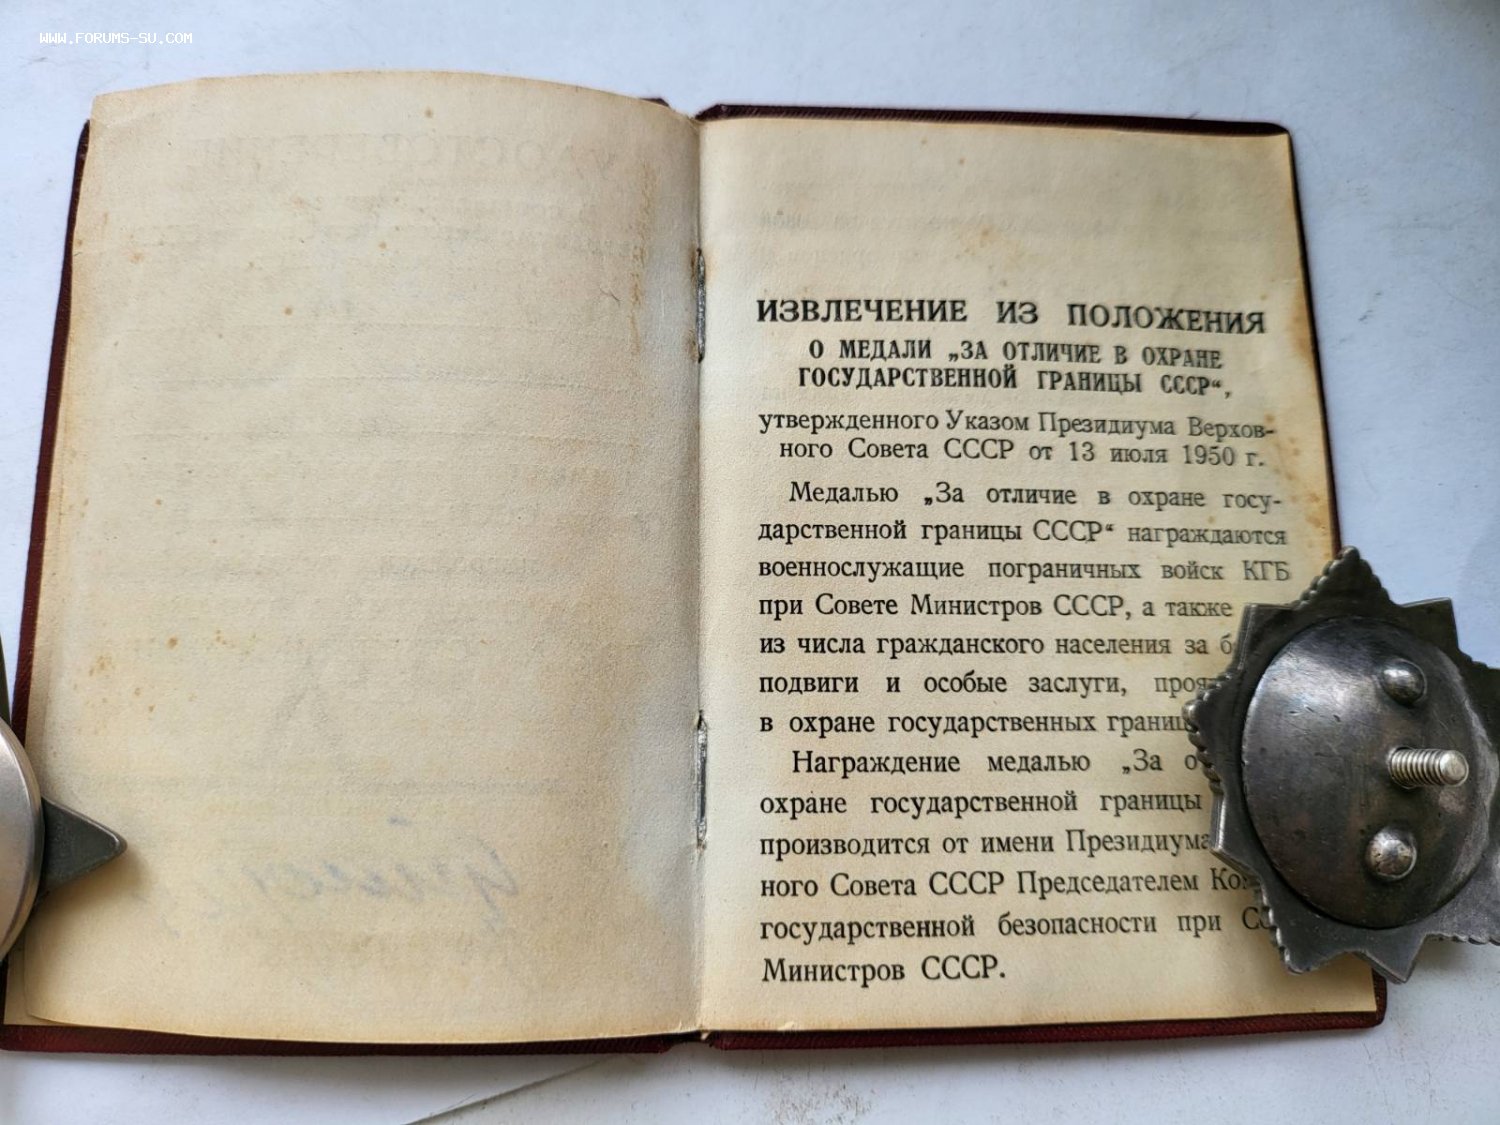 WWW.FORUMS-SU.COM
ИЗВЛЕЧЕНИЕ ИЗ ПОЛОЖЕНИЯ
О МЕДАЛИ „ЗА ОТЛИЧИЕ В ОХРАНЕ
ГОСУДАРСТВЕННОЙ ГРАНИЦЫ СССР“,
утвержденного Указом Президиума Верхов-
ного Совета СССР от 13 июля 1950 г.
Медалью „За отличие в охране госу-
дарственной границы СССР“ награждаются
военнослужащие пограничных войск КГБ
при Совете Министров СССР, а также
из числа гражданского населения за
подвиги и особые заслуги,
в охране государственных границ
Награждение медалью „За
охране государственной границы
производится от имени Президиума
ного Совета СССР Председателем
государственной безопасности при
Министров СССР.